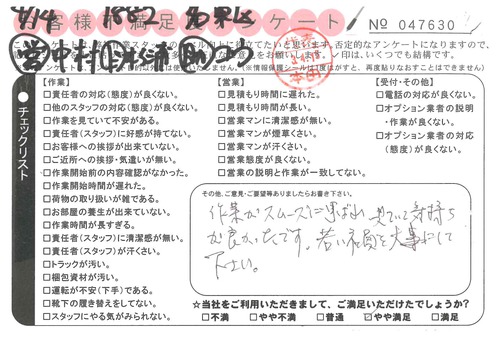 お客様満足アンケート
№ 047630
チェックリスト
【作業】
□責任者の対応(態度)が良くない。
□他のスタッフの対応(態度)が良くない。
□作業を見ていて不安がある。
□責任者(スタッフ)に好感が持てない。
□お客様への挨拶が出来ていない。
□ご近所への挨拶・気遣いが無い。
□作業開始前の内容確認がなかった。
□作業開始時間が遅れた。
□荷物の取り扱いが雑である。
□お部屋の養生が出来ていない。
□作業時間が長すぎる。
□責任者(スタッフ)に清潔感が無い。
□責任者(スタッフ)が汗くさい。
□トラックが汚い。
□梱包資材が汚い。
□運転が不安(下手)である。
□靴下の履き替えをしてない。
□スタッフにやる気がみられない。
【営業】
□見積もり時間に遅れた。
□見積もり時間が長い。
□営業マンに清潔感が無い。
□営業マンが煙草くさい。
□営業マンが汗くさい。
□営業態度が良くない。
□営業の説明と作業が一致してない。
【受付・その他】
□電話の対応が良くない。
□オプション業者の説明
・作業が良くない。
□オプション業者の対応
(態度)が良くない。
その他、ご意見・ご要望等ありましたらお書き下さい。
作業がスムーズに運ばれ 見ていて気持ち
が良かったです。若い社員を大事にして
下さい。
☆当社をご利用いただきまして、ご満足いただけたでしょうか?
□不満 □やや不満 □普通 ☑やや満足 □満足